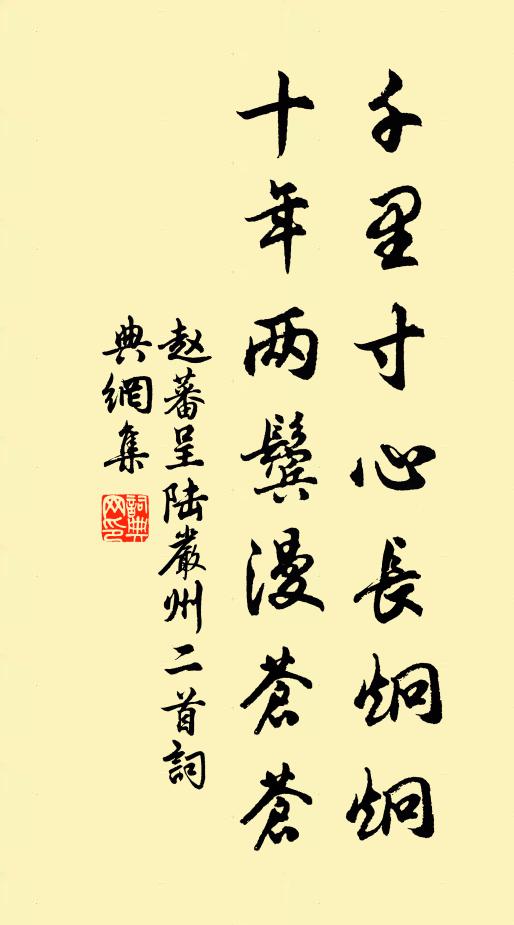 千里寸心長炯炯
十年两鬢漫蒼蒼
赵蕃呈陆嚴州二首詞
典網集
詞典
网印